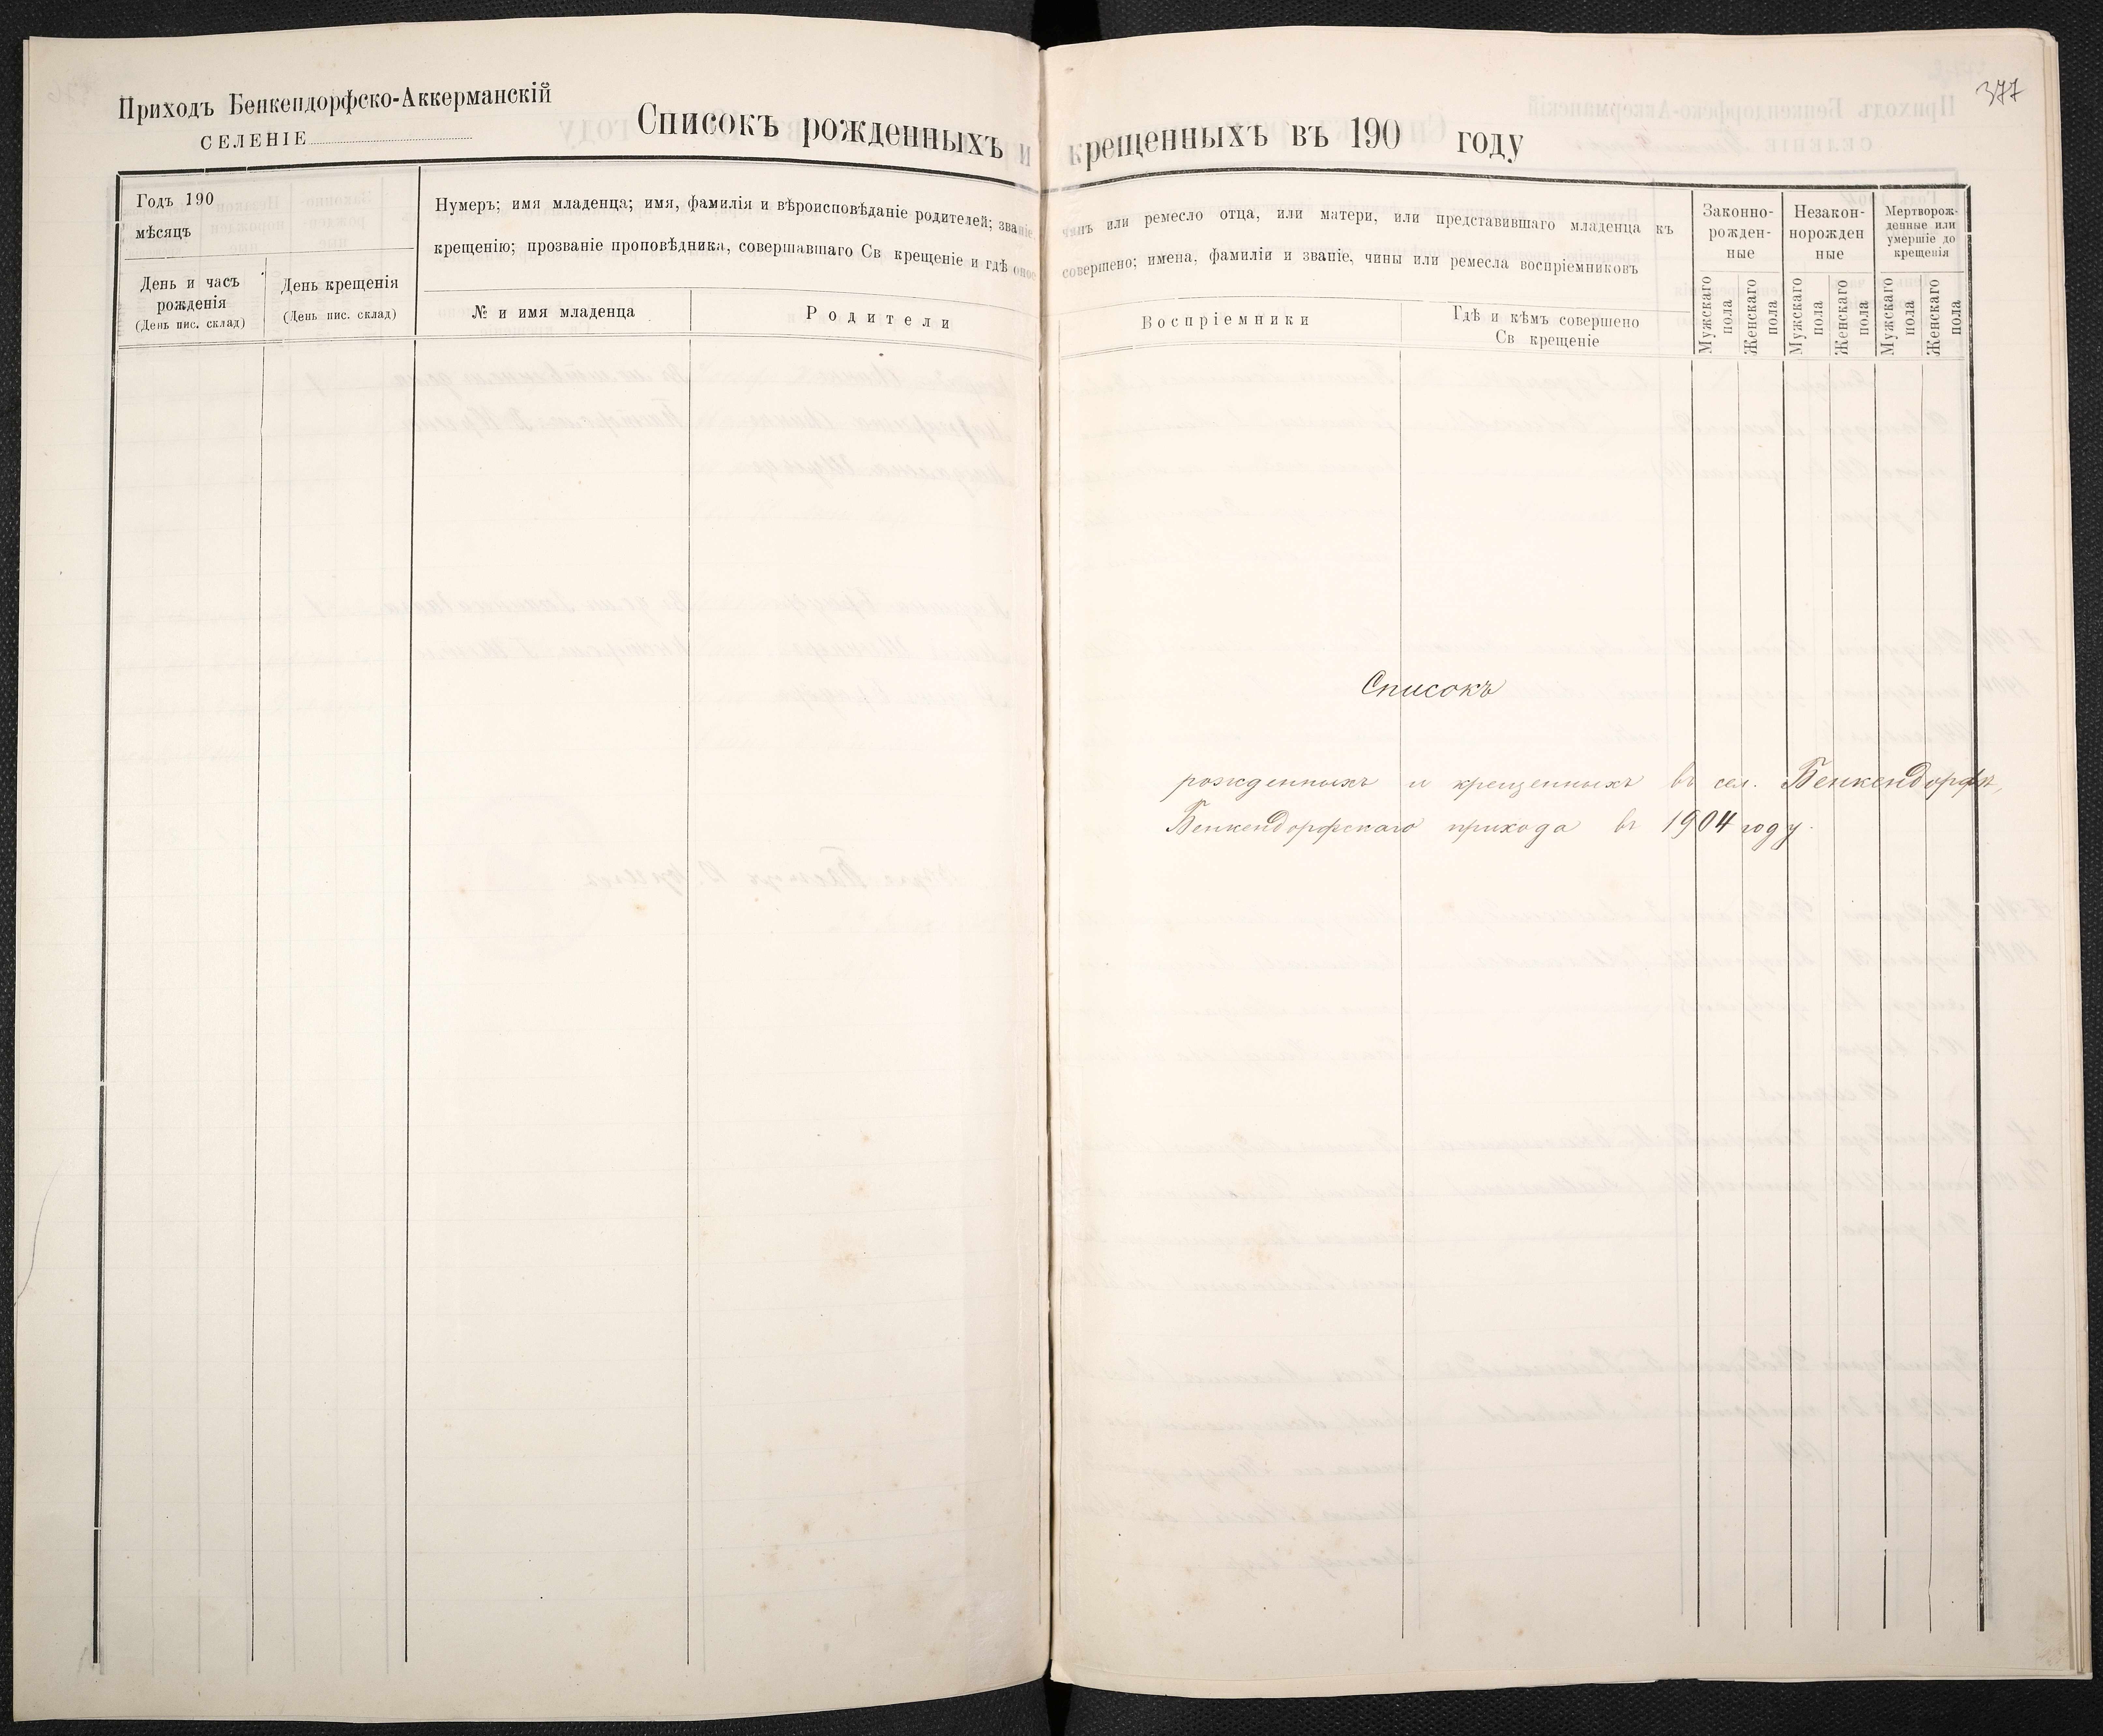 377
Приходъ Бенкендорфско-Аккерманскій
СЕЛЕНІЕ
Списокъ рожденныхъ и крещенныхъ въ 190 году
Годъ 190
мѣсяцъ
День и часъ
рожденія
(День пис. склад)
День крещенія
(День пис. склад)
Нумеръ; имя младенца; имя, фамилія и вѣроисповѣданіе родителей; званіе, чинъ или ремесло отца, или матери, или представившаго младенца къ
крещенію; прозваніе проповѣдника, совершавшаго Св крещеніе и гдѣ оное совершено; имена, фамиліи и званіе, чины или ремесла воспріемниковъ
№ и имя младенца
Родители
Воспріемники
Гдѣ и кѣмъ совершено
Св крещеніе
Законно-
рожден-
ные
Незакон-
норожден
ные
Мертворож-
денные или
умершіе до
крещенія
Мужскаго
пола
Женскаго
пола
Мужскаго
пола
Женскаго
пола
Мужскаго
пола
Женскаго
пола
Списокъ
рожденныхъ и крещенныхъ въ сел. Бенкендорфѣ,
Бенкендорфскаго прихода въ 1904 году.